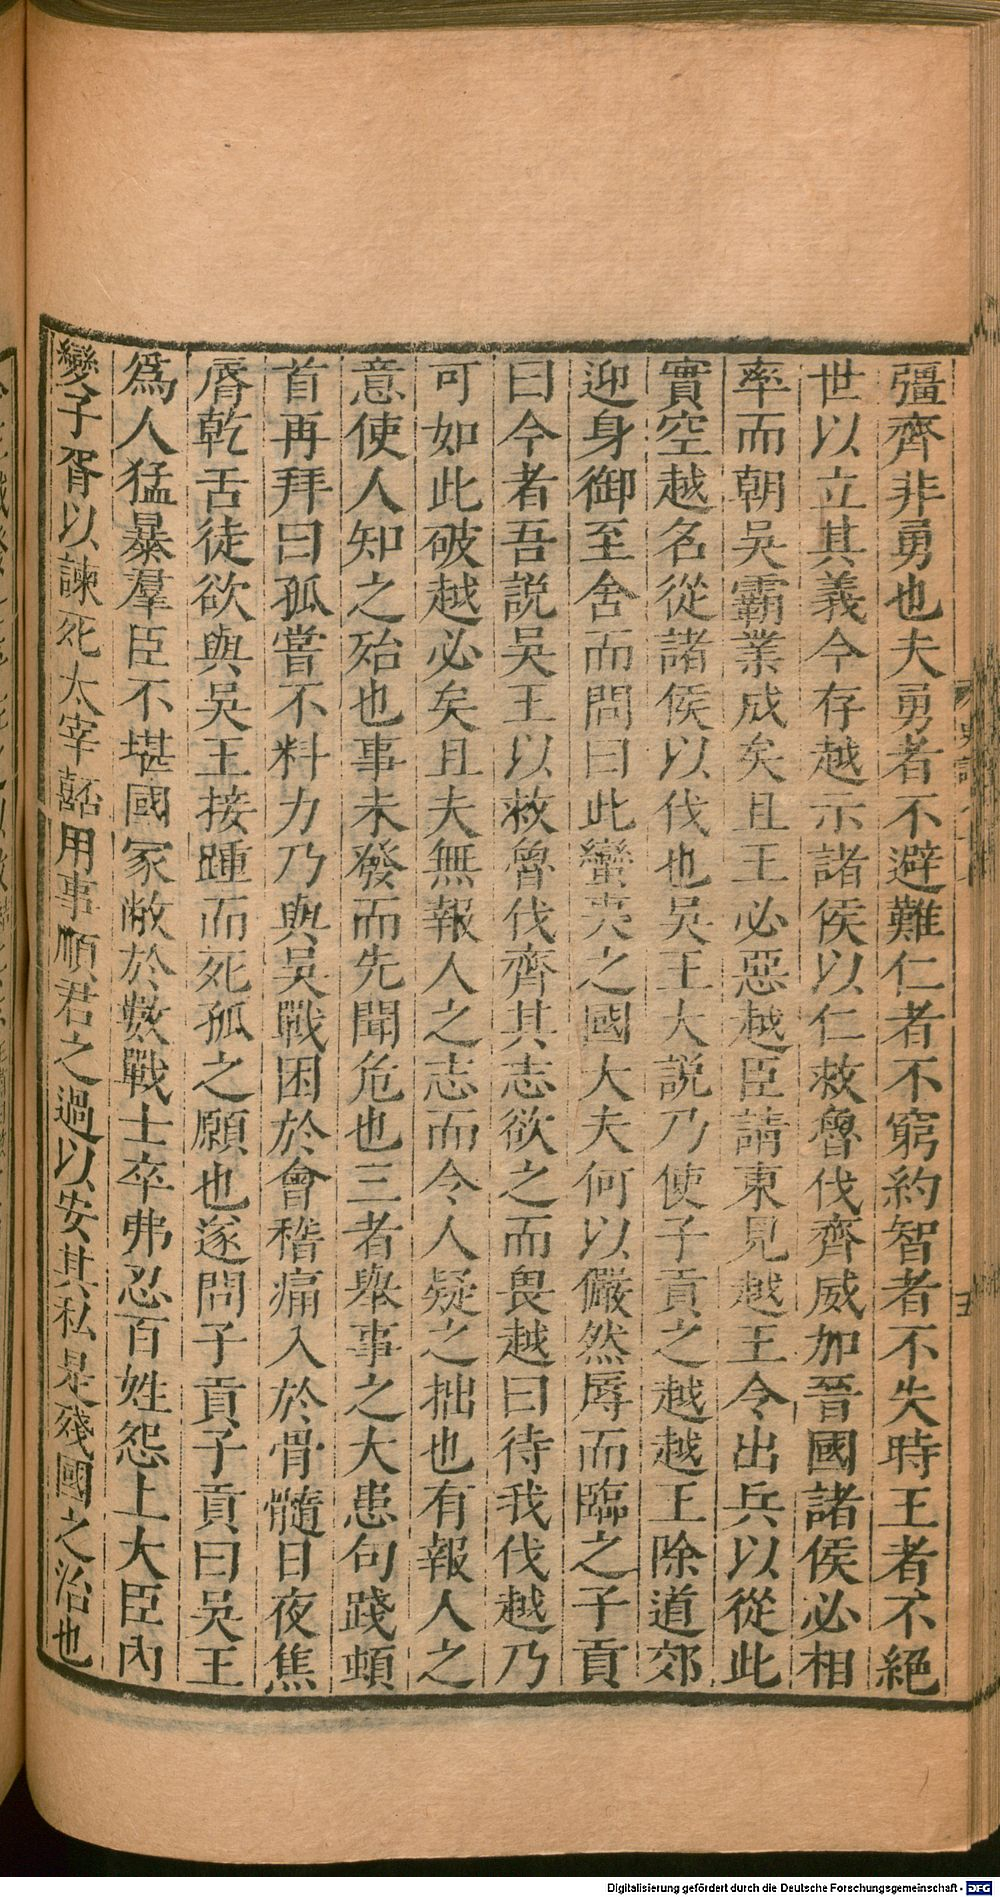 彊齊非勇也夫勇者不避難仁者不窮約智者不失時王者不絕
世以立其義今存越示諸侯以仁救魯伐齊威加晉國諸侯必相
率而朝吳霸業成矣且王必惡越臣請東見越王令出兵以從此
實空越名從諸侯以伐也吳王大說乃使子貢之越越王除道郊
迎身御至舍而問曰此蠻夷之國大夫何以儼然辱而臨之子貢
曰今者吾說吳王以救魯伐齊其志欲之而畏越曰待我伐越乃
可如此破越必矣且夫無報人之志而令人疑之拙也有報人之
意使人知之殆也事未發而先聞危也三者舉事之大患句踐頓
首再拜曰孤嘗不料力乃與吳戰困於會稽痛入於骨髓日夜焦
脣乾舌徒欲與吳王接踵而死孤之願也遂問子貢子貢曰吳王
為人猛暴羣臣不堪國家敝於數戰士卒弗忍百姓怨上大臣內
變子胥以諫死太宰嚭用事順君之過以安其私是殘國之治也
Digitalisierung gefördert durch die Deutsche Forschungsgemeinschaft - DFG